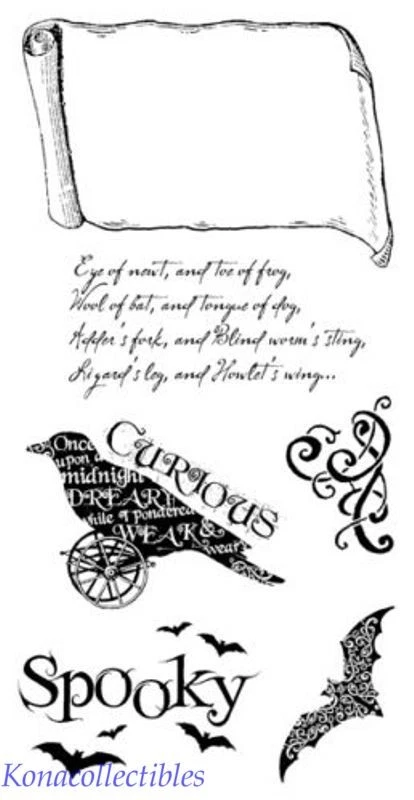 Eye of newt, and toe of frog,
Wool of bat, and tongue of dog,
Adder's fork, and Blind worm's sting,
Lizard's leg, and Howlet's wing...
CURIOUS
Once
upon a
midnight
DREARY
while I pondered
WEAK &
weary
Spooky
Konacollectibles